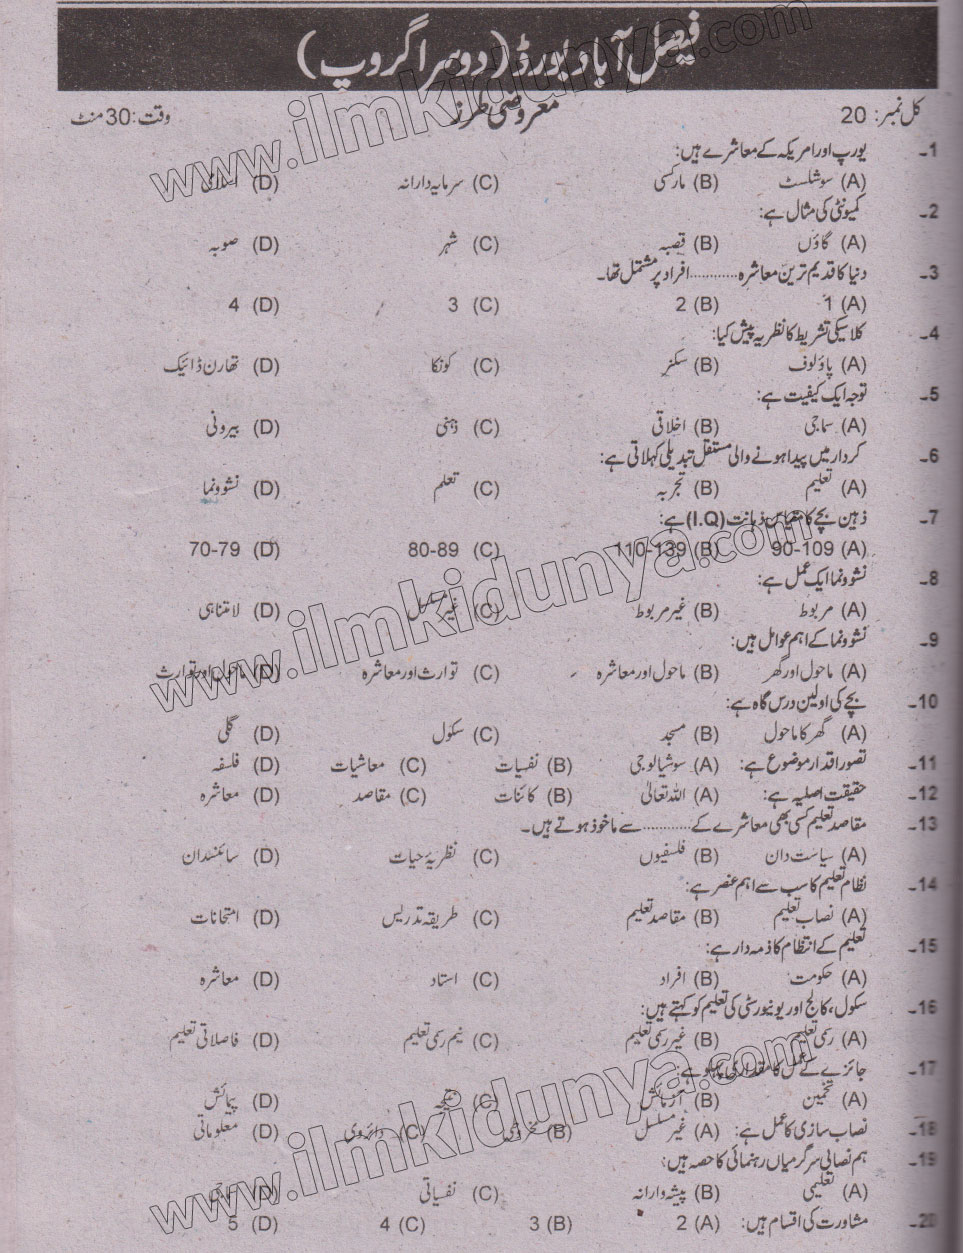 فیصل آباد بورڈ (دوسرا گروپ)
کل نمبر: 20 معروضی طرز وقت: 30 منٹ
1۔ یورپ اور امریکہ کے معاشرے ہیں:
(A) سوشلسٹ (B) مارکسی (C) سرمایہ دارانہ (D) اسلامی
2۔ کمیونٹی کی مثال ہے:
(A) گاؤں (B) قصبہ (C) شہر (D) صوبہ
3۔ دنیا کا قدیم ترین معاشرہ ............ افراد پر مشتمل تھا۔
(A) 1 (B) 2 (C) 3 (D) 4
4۔ کلاسیکی تشریط کا نظریہ پیش کیا:
(A) پاؤلوف (B) سکنر (C) کونکا (D) تھارن ڈائیک
5۔ توجہ ایک کیفیت ہے:
(A) سماجی (B) اخلاقی (C) ذہنی (D) بیرونی
6۔ کردار میں پیدا ہونے والی مستقل تبدیلی کہلاتی ہے:
(A) تعلیم (B) تجربہ (C) تعلم (D) نشوونما
7۔ ذہین بچے کا مقیاس ذہانت (I.Q) ہے:
(A) 90-109 (B) 110-139 (C) 80-89 (D) 70-79
8۔ نشوونما ایک عمل ہے:
(A) مربوط (B) غیر مربوط (C) غیر مسلسل (D) لامتناہی
9۔ نشوونما کے اہم عوامل ہیں:
(A) ماحول اور گھر (B) ماحول اور معاشرہ (C) توارث اور معاشرہ (D) ماحول اور توارث
10۔ بچے کی اولین درس گاہ ہے:
(A) گھر کا ماحول (B) مسجد (C) سکول (D) گلی
11۔ تصور اقدار موضوع ہے: (A) سوشیالوجی (B) نفسیات (C) معاشیات (D) فلسفہ
12۔ حقیقت اصلیہ ہے: (A) اللہ تعالیٰ (B) کائنات (C) مقاصد (D) معاشرہ
13۔ مقاصد تعلیم کسی بھی معاشرے کے ............ سے ماخوذ ہوتے ہیں۔
(A) سیاست دان (B) فلسفیوں (C) نظریۂ حیات (D) سائنسدان
14۔ نظام تعلیم کا سب سے اہم عنصر ہے:
(A) نصاب تعلیم (B) مقاصد تعلیم (C) طریقہ تدریس (D) امتحانات
15۔ تعلیم کے انتظام کا ذمہ دار ہے:
(A) حکومت (B) افراد (C) استاد (D) معاشرہ
16۔ سکول، کالج اور یونیورسٹی کی تعلیم کو کہتے ہیں:
(A) رسمی تعلیم (B) غیر رسمی تعلیم (C) نیم رسمی تعلیم (D) فاصلاتی تعلیم
17۔ جائزے کے عمل کا مقداری پہلو ہے:
(A) تخمین (B) آزمائش (C) نتیجہ (D) پیمائش
18۔ نصاب سازی کا عمل ہے: (A) غیر مسلسل (B) مخروطی (C) دائروی (D) معلوماتی
19۔ ہم نصابی سرگرمیاں رہنمائی کا حصہ ہیں:
(A) تعلیمی (B) پیشہ وارانہ (C) نفسیاتی (D) سماجی
20۔ مشاورت کی اقسام ہیں: (A) 2 (B) 3 (C) 4 (D) 5
www.ilmkidunya.com
www.ilmkidunya.com
www.ilmkidunya.com